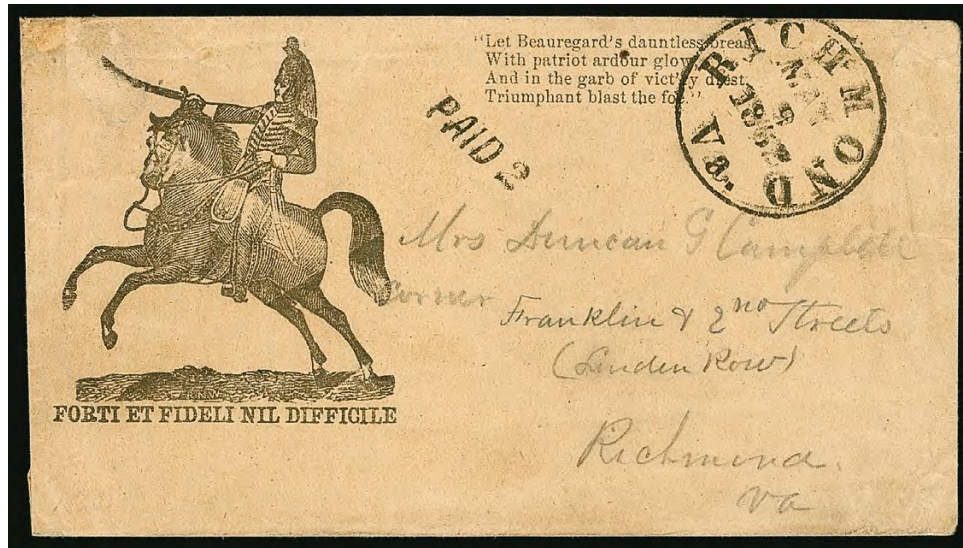 “Let Beauregard's dauntless breas
With patriot ardour glow,
And in the garb of vict'ry drest,
Triumphant blast the foe.”
RICHMOND Va.
MAY
9
1862
PAID 2
Mrs Duncan G Campbell
Corner
Franklin & 2nd Streets
(Linden Row)
Richmond.
Va
R.N.W.
FORTI ET FIDELI NIL DIFFICILE